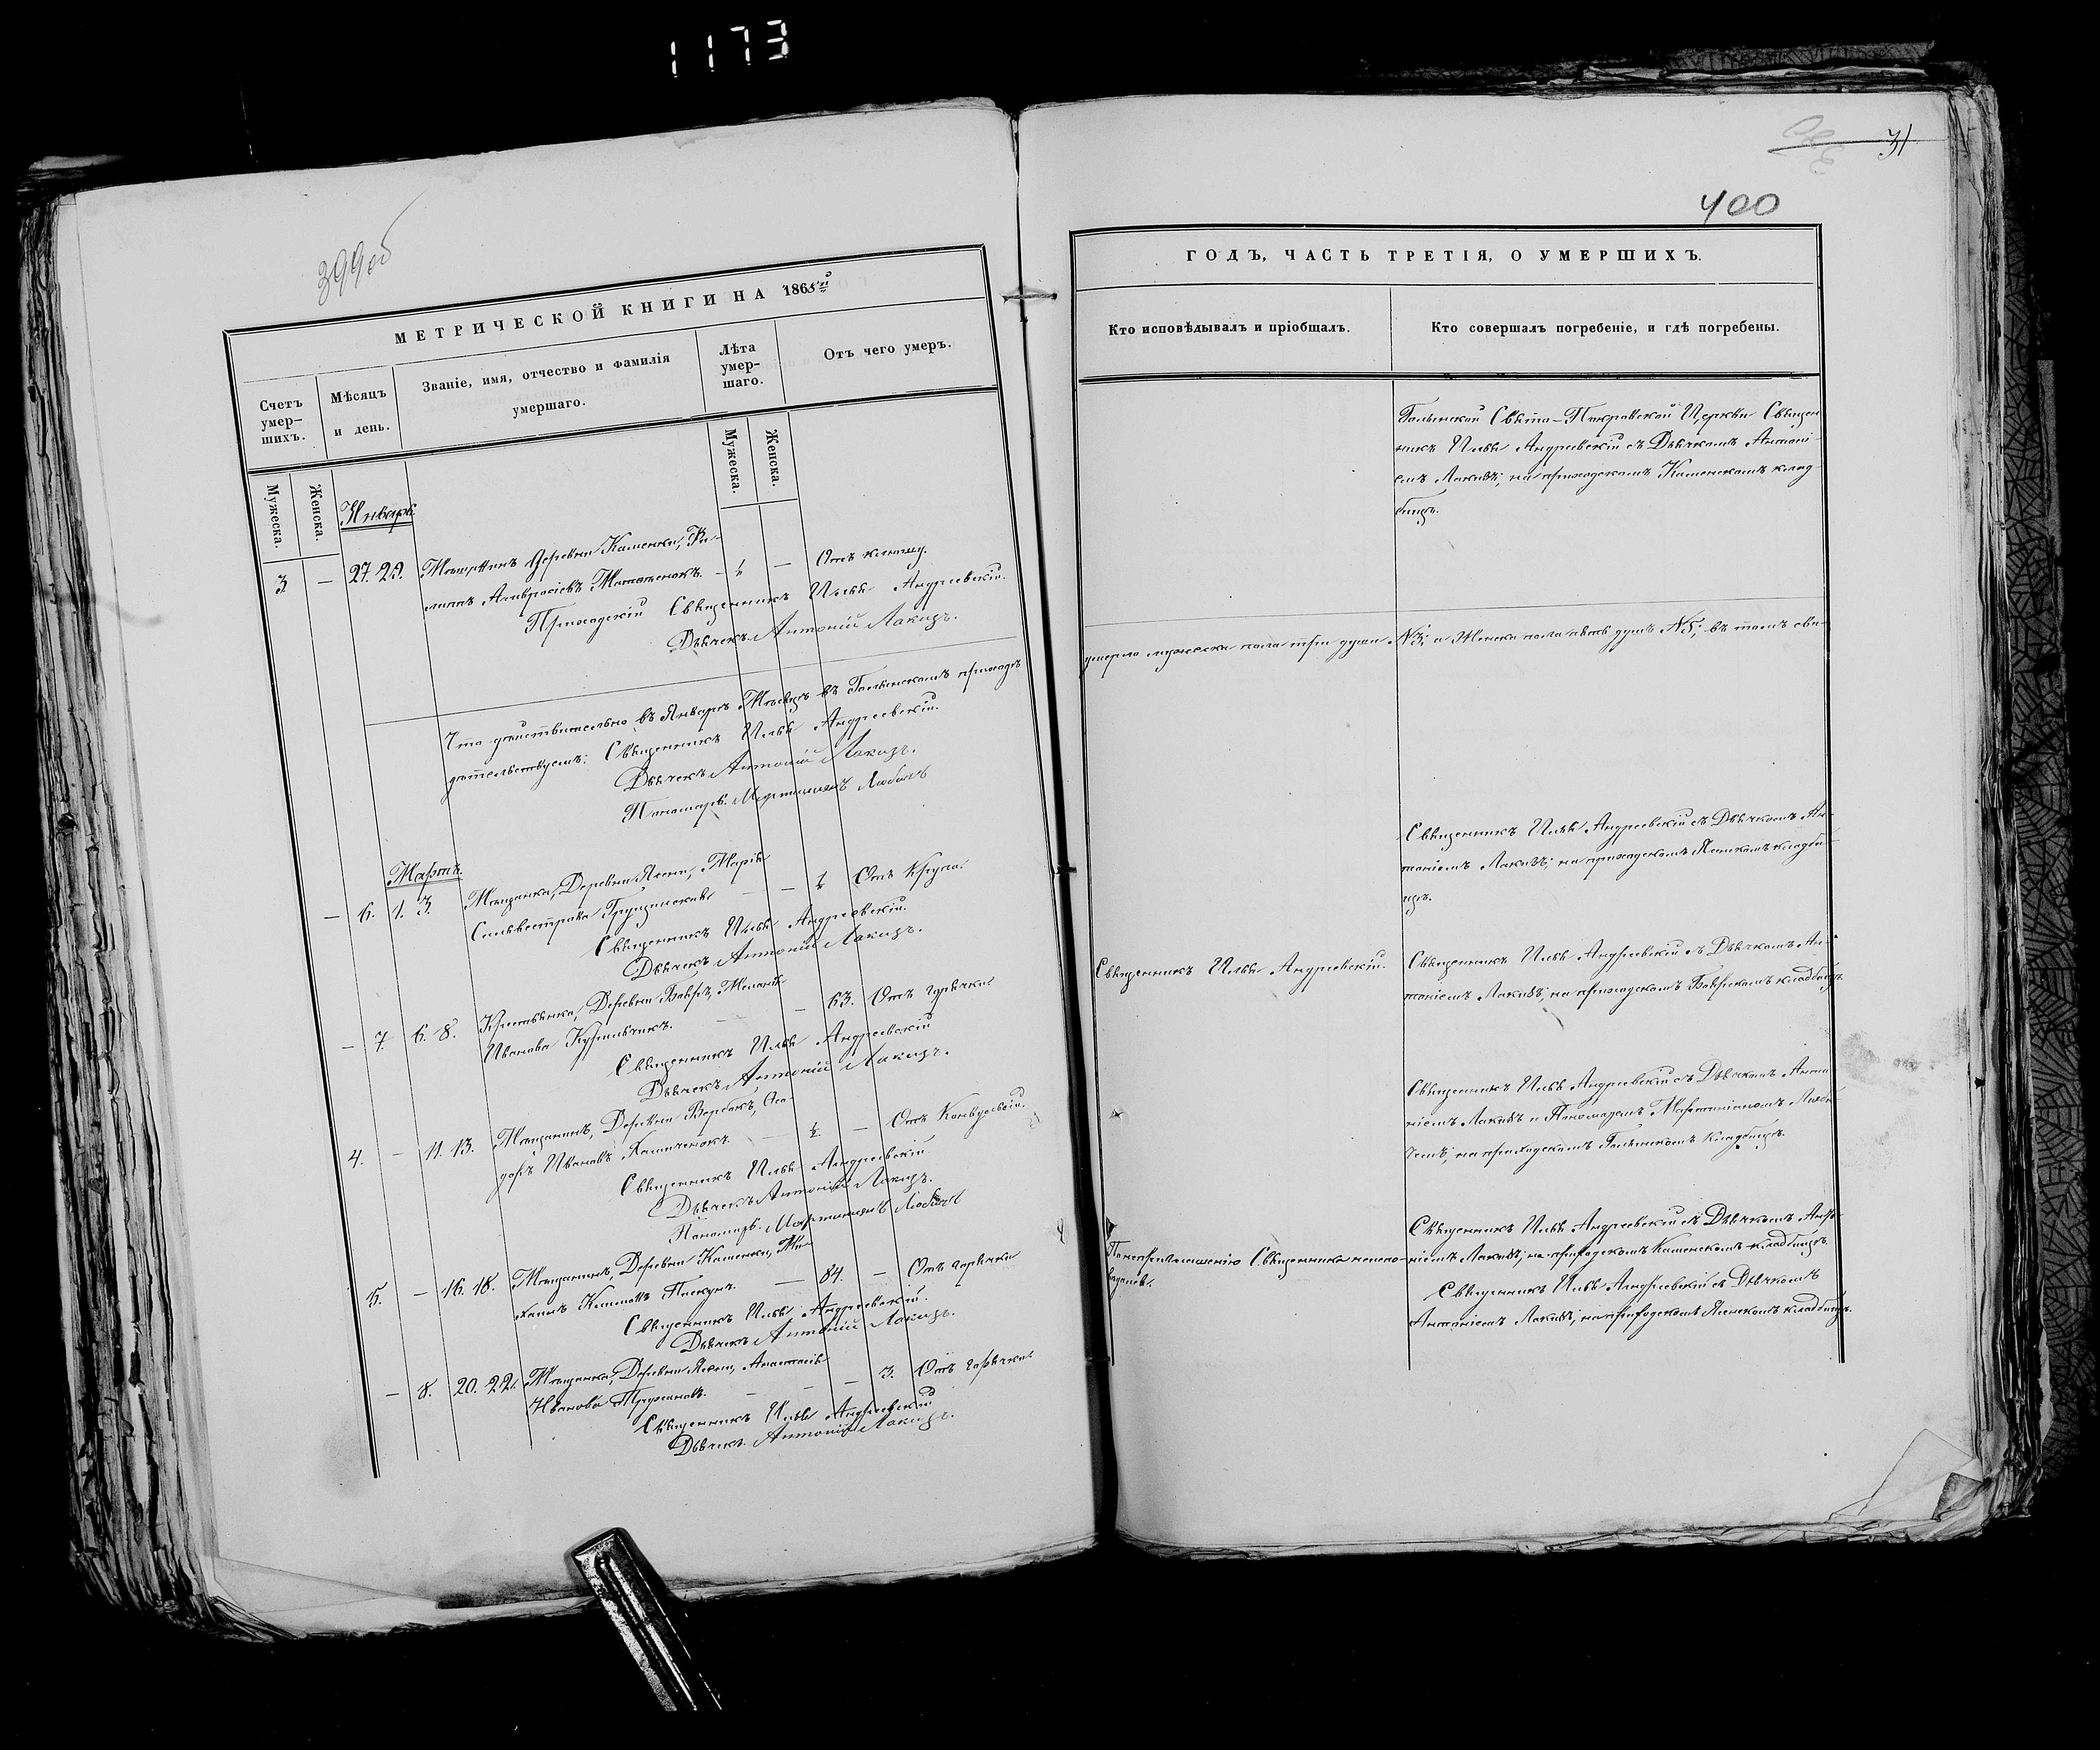 1173
31
399 об
400
МЕТРИЧЕСКОЙ КНИГИ НА 1865й
Счетъ умер-шихъ.
Мѣсяцъ и день.
Званіе, имя, отчество и фамилія умершаго.
Лѣта умер-шаго.
Отъ чего умеръ.
Мужеска.
Женска.
Мужеска.
Женска.
Январь.
3. — 27. 29. Мѣщанинъ Деревни Каменки, Фи-
липъ Амвросіевъ — — Отъ кашлю.
Приходскій Священникъ Илья Андреевскій.
Дьячекъ Антоній Лакизъ.
Что дѣйствительно въ Январѣ Мѣсяцѣ въ Голынскомъ приходѣ
дѣтельствуемъ: Священникъ Илья Андреевскій.
Дьячекъ Антоній Лакизъ.
Пономарь Мартиніанъ Любичъ
Мартъ.
— 6. 1. 3. Мѣщанка, Деревни Ясени, Марія
Сильвестрова — — Отъ Крупа.
Священникъ Илья Андреевскій.
Дьячекъ Антоній Лакизъ.
— 7. 6. 8. Крестьянка, Деревни Меланія
Иванова — 63. Отъ горячки
Священникъ Илья Андреевскій
Дьячекъ Антоній Лакизъ.
4. — 11. 13. Мѣщанинъ, Деревни Вербокъ, Ѳео-
доръ Ивановъ — Отъ Конвульсій.
Священникъ Илья Андреевскій.
Дьячекъ Антоній Лакизъ.
Пономарь Мартиніанъ Любичъ
5. — 16. 18. Мѣщанинъ, Деревни Каменки,
— 84. — Отъ горячки
Священникъ Илья Андреевскій.
Дьячекъ Антоній Лакизъ.
— 8. 20. 22. Мѣщанка, Деревни Ясени, Анастасія
Иванова — — — 3. Отъ горячки
Священникъ Илья Андреевскій
Дьячекъ Антоній Лакизъ.
ГОДЪ, ЧАСТЬ ТРЕТІЯ, О УМЕРШИХЪ.
Кто исповѣдывалъ и пріобщалъ.
Кто совершалъ погребеніе, и гдѣ погребены.
Голынской Свято-Покровской Церкви Священ-
никъ Илья Андреевскій съ Дьячкомъ Антоні-
емъ Лакизъ; на приходскомъ Каменскомъ клад-
бищѣ.
умерло мужеска пола три души №3; и Женска пола пять душъ №5; въ томъ сви-
Священникъ Илья Андреевскій съ Дьячкомъ Ан-
тоніемъ Лакизъ; на приходскомъ Ясенскомъ кладби-
щѣ.
Священникъ Илья Андреевскій.
Священникъ Илья Андреевскій съ Дьячкомъ Ан-
тоніемъ Лакизъ; на приходскомъ кладбищѣ.
Священникъ Илья Андреевскій съ Дьячкомъ Анто-
ніемъ Лакизъ и Пономаремъ Мартиніаномъ Люби-
чемъ; на приходскомъ Голынскомъ кладбищѣ.
По неприглашенію Священника неиспо-
вѣданъ.
Священникъ Илья Андреевскій съ Дьячкомъ Анто-
ніемъ Лакизъ; на приходскомъ Каменскомъ кладбищѣ.
Священникъ Илья Андреевскій съ Дьячкомъ
Антоніемъ Лакизъ; на приходскомъ Ясенскомъ кладбищѣ.